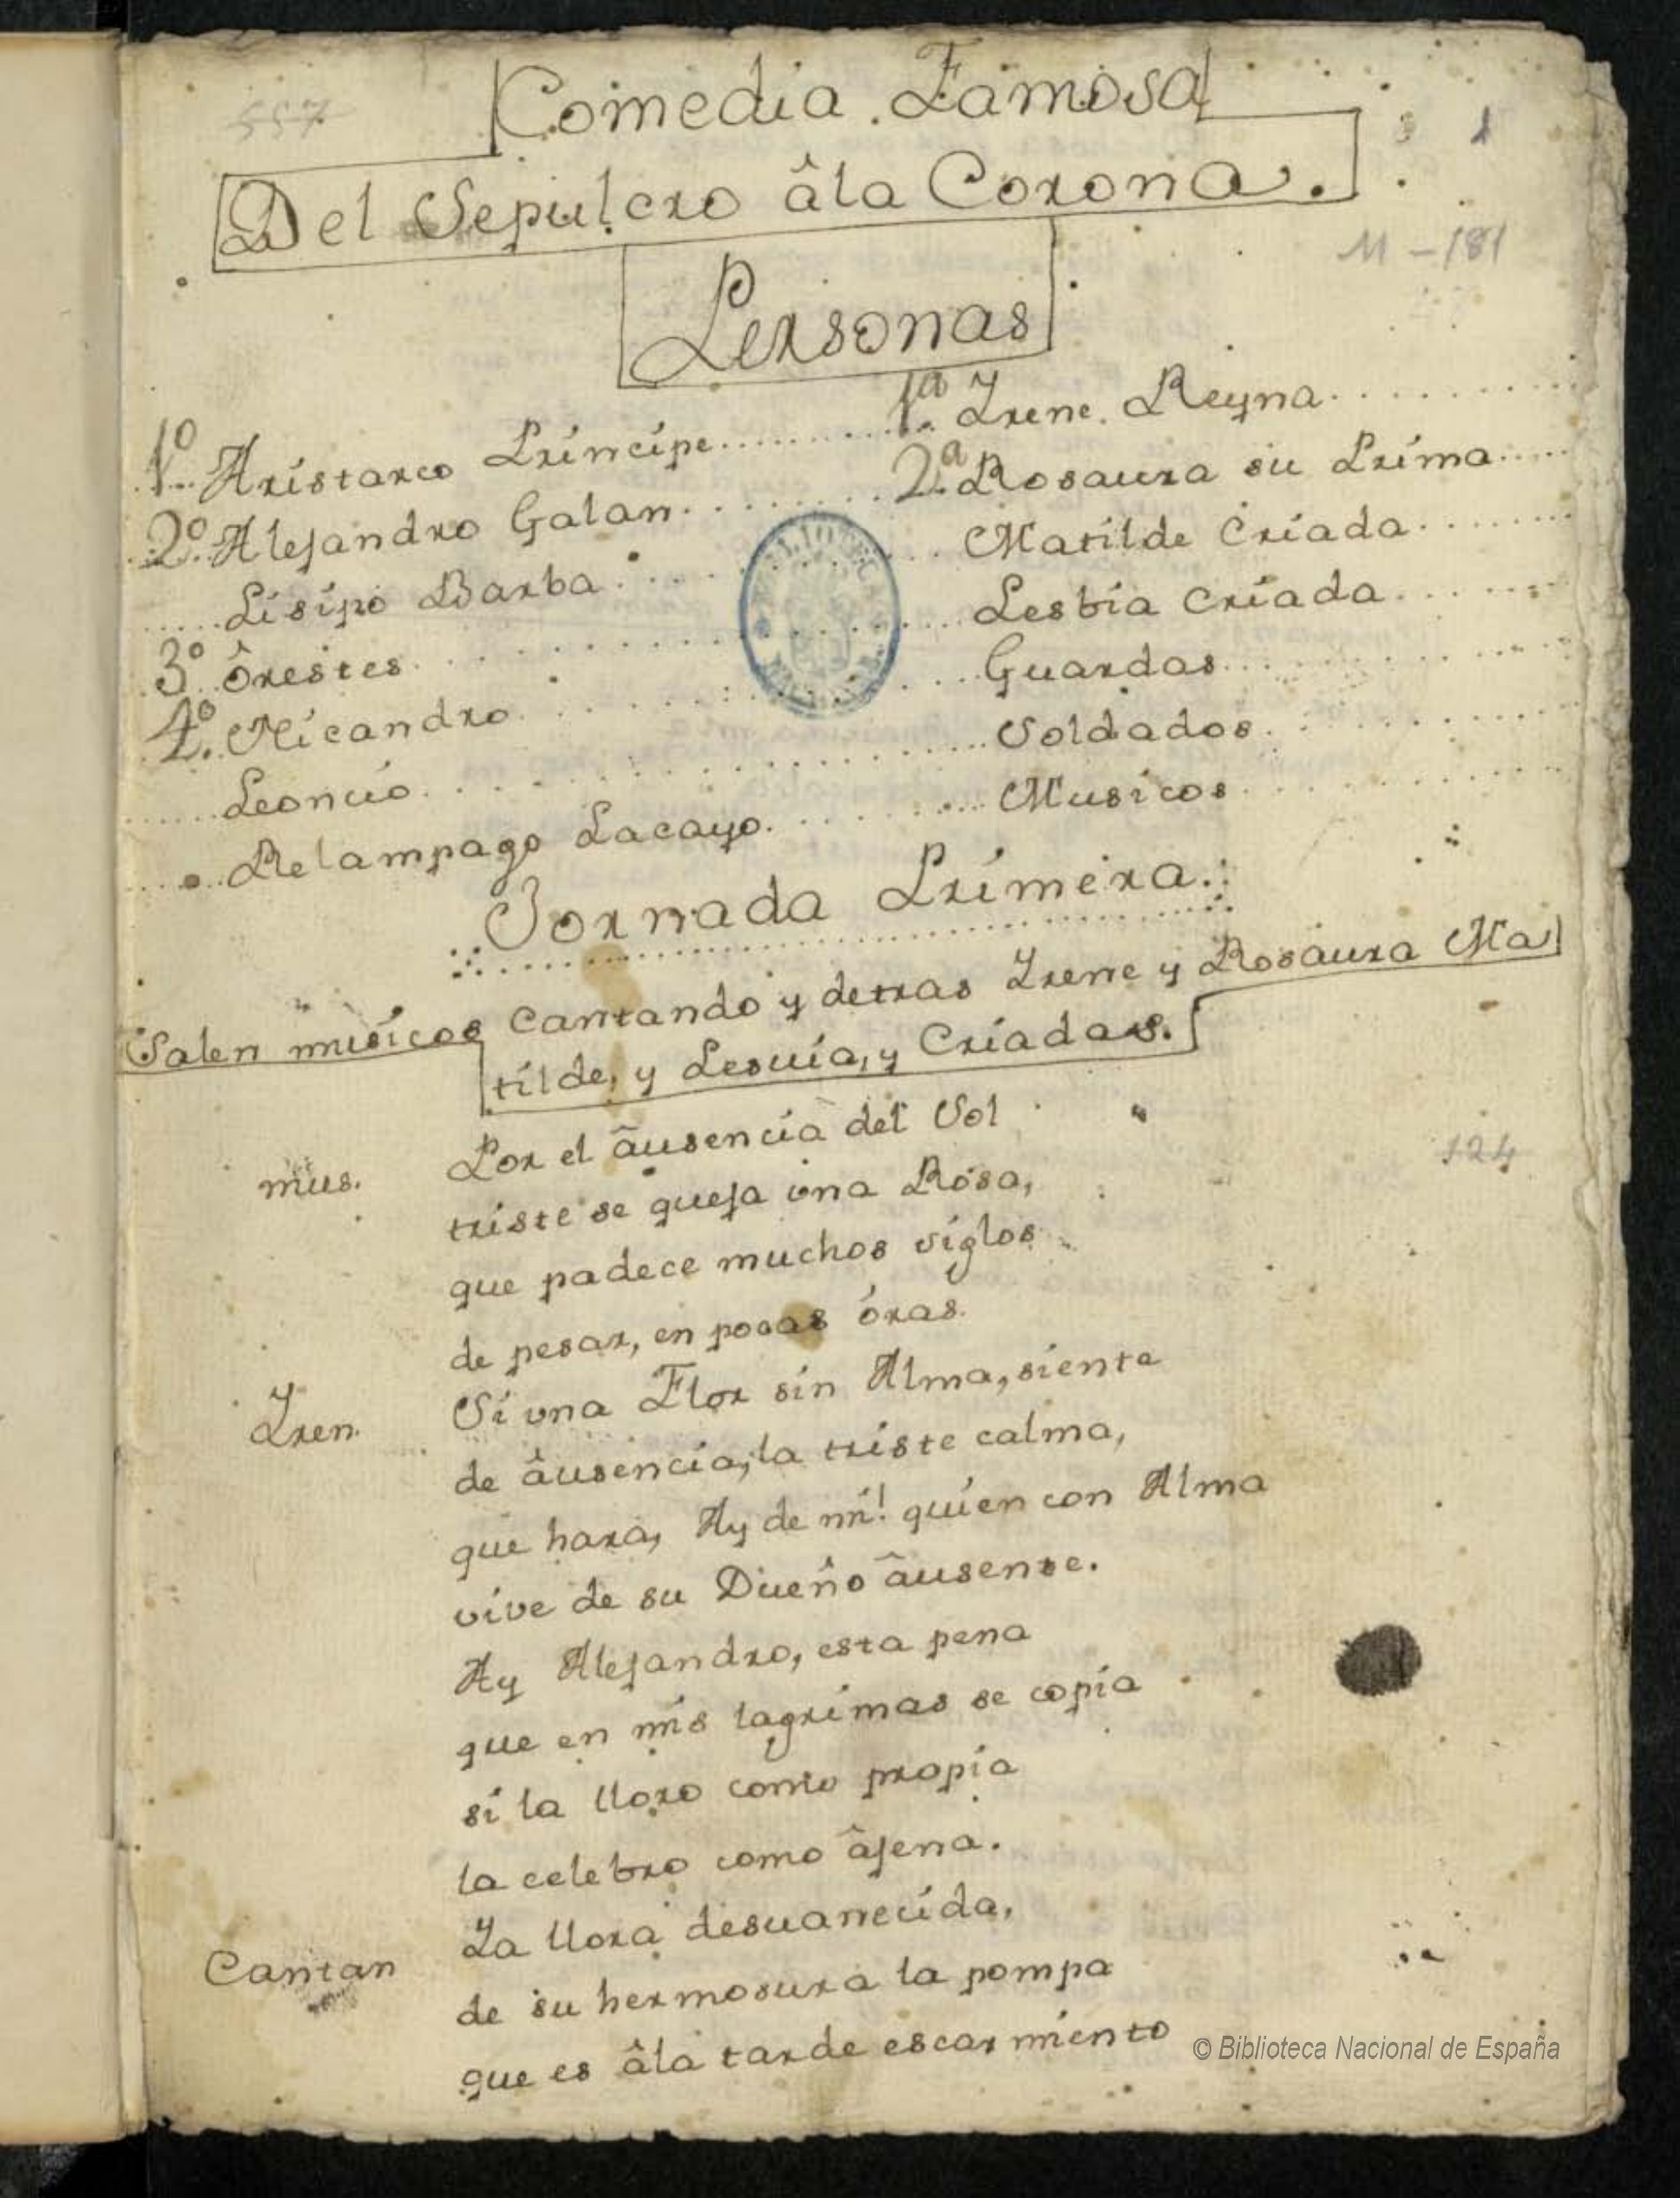 557
Comedia Famosa
1
Del Sepulcro âla Corona.
M-181
Personas
1º Aristarco Principe
1ª Irene Reyna
2º Alejandro Galan
2ª Rosaura su Prima
Lisipo Barba
Matilde Criada
3º ôrestes
Lesbia Criada
4º Nicandro
Guardas
Leoncio
Soldados
Relampago Lacayo
Musicos
Jornada Primera
Salen musicos Cantando y detras Irene y Rosaura Ma
tilde, y Lesuia, y Criadas.
mus. Por el âusencia del Sol
triste se queja vna Rosa,
que padece muchos siglos
de pesar, en pocas óras.
Iren. Si vna Flor sin Alma, siente
de âusencia, la triste calma,
que hara, Ay de mi! quien con Alma
vive de su Dueño âusente.
Ay Alejandro, esta pena
que en mis lagrimas se copia
si la lloro como propia
la celebro como âjena.
Cantan Ya llora desuanecida,
de su hermosura la pompa
que es âla tarde escarmiento
124
© Biblioteca Nacional de España